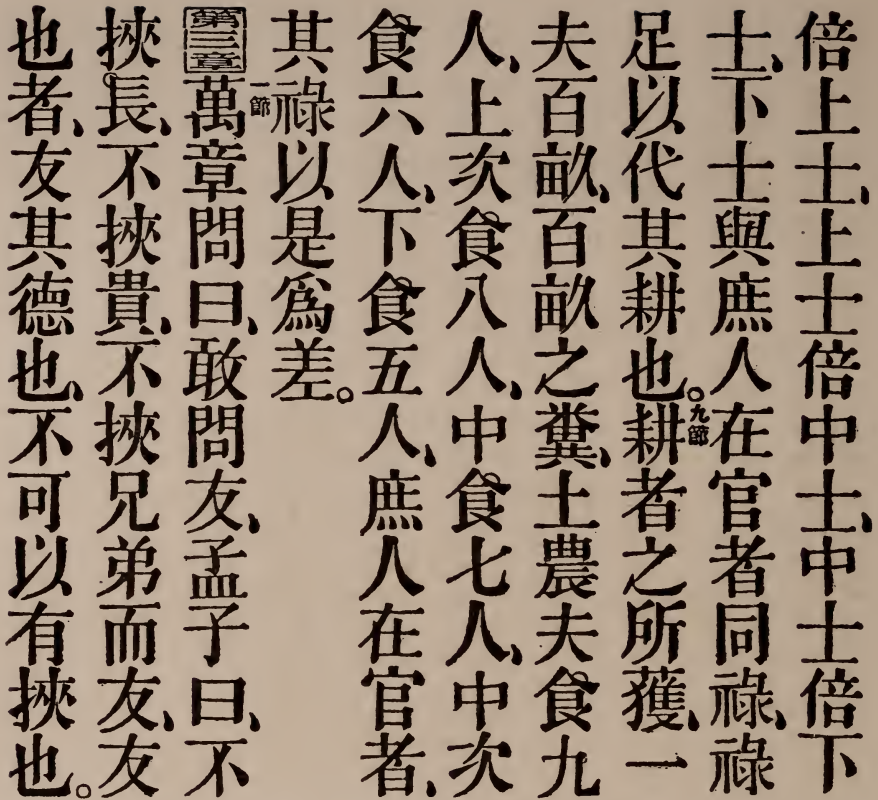 倍上士、上士倍中士、中士倍下
士、下士與庶人在官者同祿、祿
足以代其耕也。九節耕者之所獲、一
夫百畝、百畝之糞、土農夫食九
人、上次食八人、中食七人、中次
食六人、下食五人、庶人在官者、
其祿以是爲差。
第三章一節萬章問曰、敢問友、孟子曰、不
挾長、不挾貴、不挾兄弟而友、友
也者、友其德也、不可以有挾也。